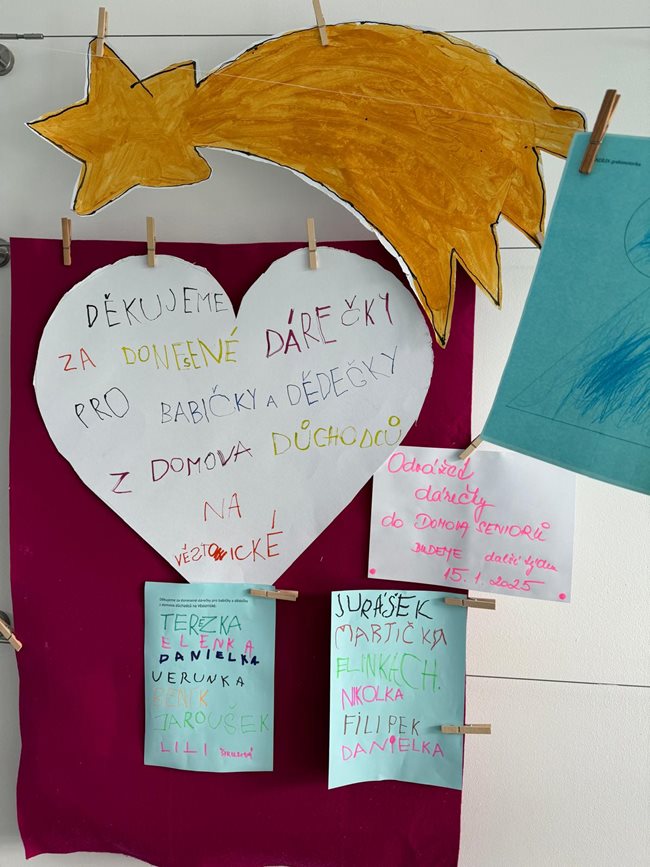 DĚKUJEME
ZA DONEŠENÉ DÁREČKY
PRO BABIČKY A DĚDEČKY
Z DOMOVA DŮCHODCŮ
NA
VĚSTONICKÉ
Odnášet
dárečky
do DOMOVA SENIORŮ
BUDEME další týden
15.1.2025
Děkujeme za donesené dárečky pro babičky a dědečky
z domova důchodců na Věstonické
TEREZKA
ELENKA
DANIELKA
VERUNKA
JAROUŠEK
LILI
JURÁŠEK
MARTIČKA
NIKOLKA
FILIPEK
DANIELKA